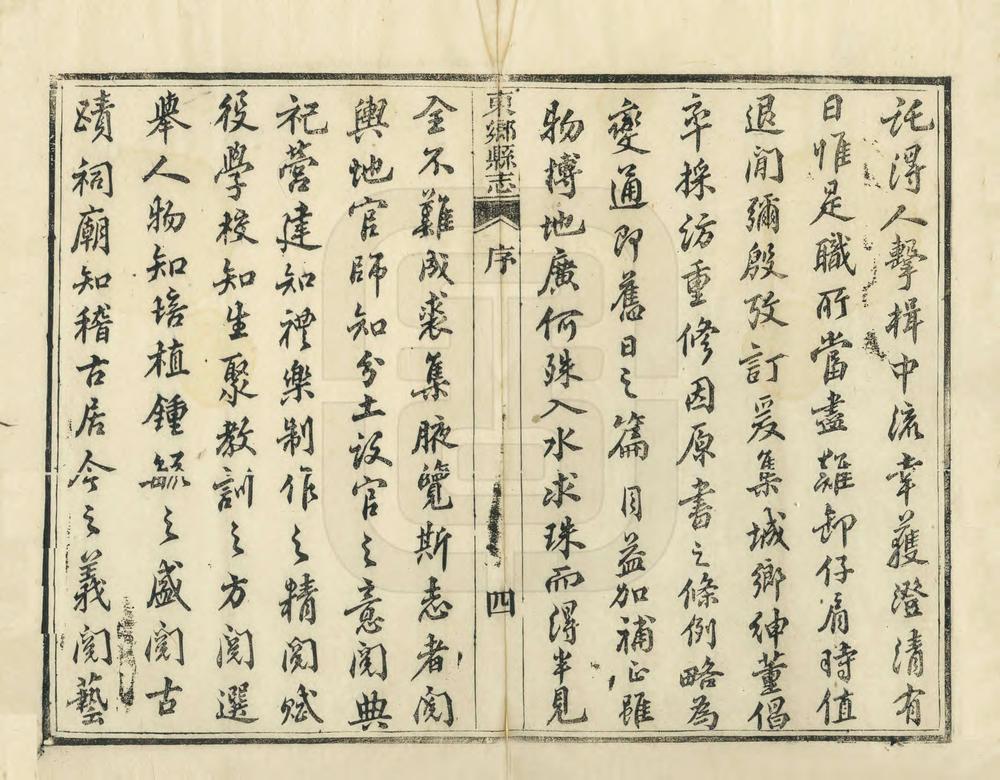 託得人擊楫中流幸獲澄清有
日惟是職所當盡雖卸仔肩時值
退閒彌殷攷訂爰集城鄉紳董倡
率採訪重修因原書之條例略為
變通即舊日之篇目益加補正雖
物博地廣何殊入水求珠而得半見
東鄉縣志
序
四
全不難成裘集腋覽斯志者閱
輿地官師知分土設官之意閱典
祀營建知禮樂制作之精閱賦
役學校知生聚教訓之方閱選
舉人物知培植鍾毓之盛閱古
蹟祠廟知稽古居今之義閱藝